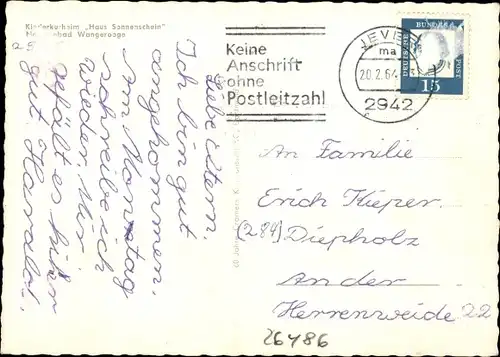 Kinderkurheim "Haus Sonnenschein"
Nordseebad Wangerooge
Liebe Eltern.
Ich bin gut
angekommen,
am Montag
schreibe ich
wieder. Mir
gefält es hier
gut Harald.
Keine
Anschrift
ohne
Postleitzahl
JEVER
ma
20.2.64
2942
DEUTSCHE
BUNDES
POST
15
An Familie
Erich Kieper.
(284) Diepholz
An der
Herrenweide 22
26486